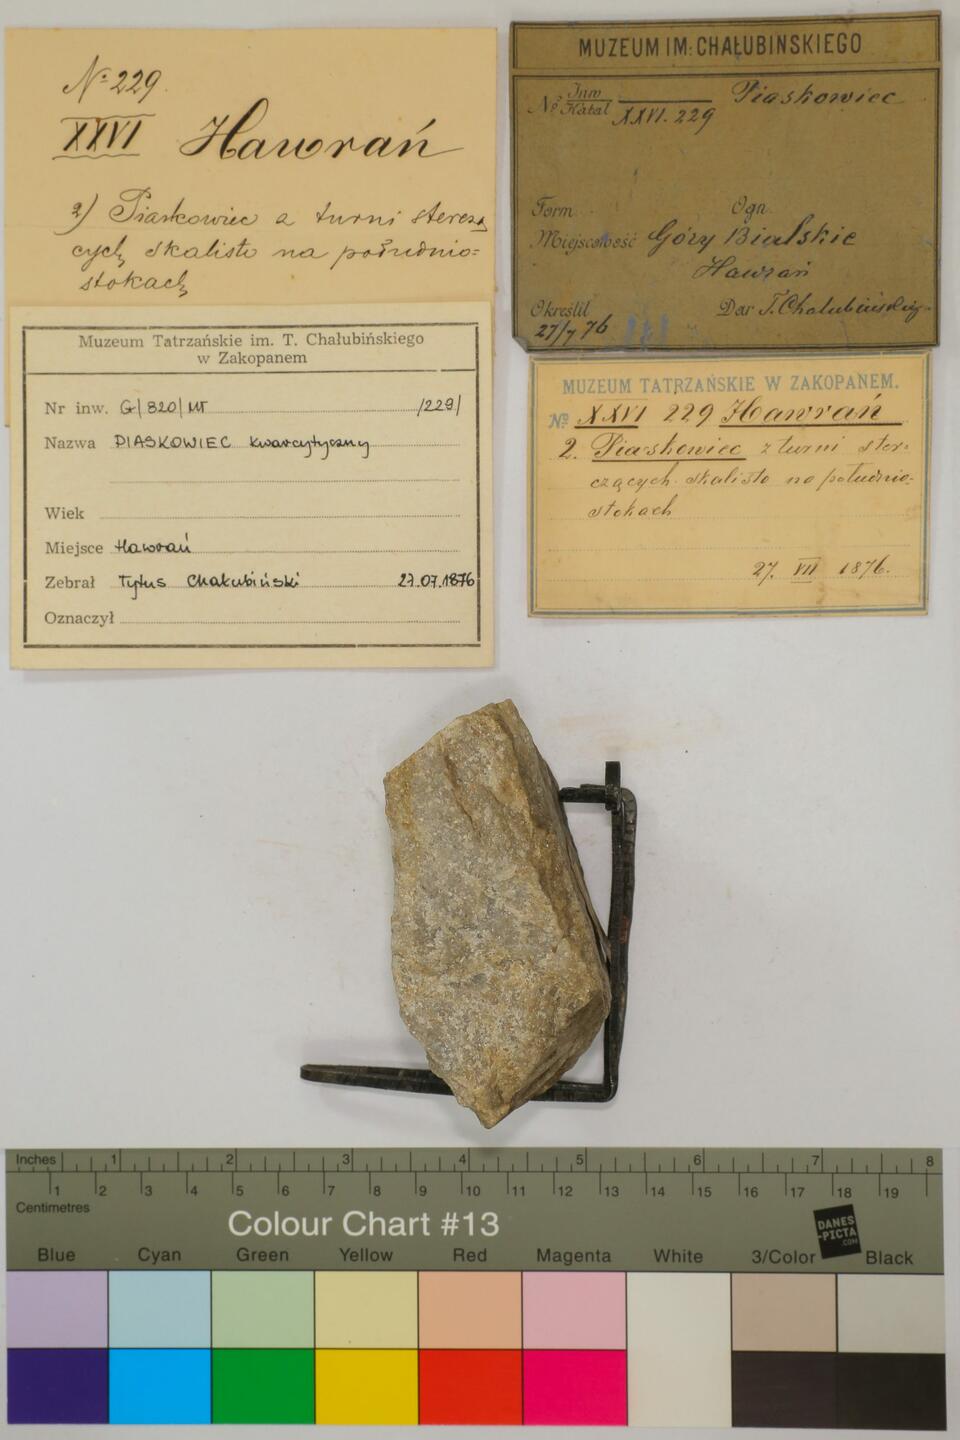 No 229.
XXVI Hawrań
2) Piaskowiec z turni stercz
cych skalisto na południo=
stokach
MUZEUM IM: CHAŁUBIŃSKIEGO
No Inw
Katal XXVI. 229 Piaskowiec
Form Ogn
Miejscowość Góry Bialskie
Hawrań
Określił Dar T. Chałubińskiego
27/7 76
Muzeum Tatrzańskie im. T. Chałubińskiego
w Zakopanem
Nr inw. G/820/MT /229/
Nazwa PIASKOWIEC kwarcytyczny
Wiek
Miejsce Hawrań
Zebrał Tytus Chałubiński 27.07.1876
Oznaczył
MUZEUM TATRZAŃSKIE W ZAKOPANEM.
No XXVI 229 Hawrań
2. Piaskowiec z turni ster-
czących skalisto na południo-
stokach
27. VII 1876.
Inches 1 2 3 4 5 6 7 8
1 2 3 4 5 6 7 8 9 10 11 12 13 14 15 16 17 18 19
Centimetres
Colour Chart #13
DANES
-PICTA
.COM
Blue Cyan Green Yellow Red Magenta White 3/Color Black